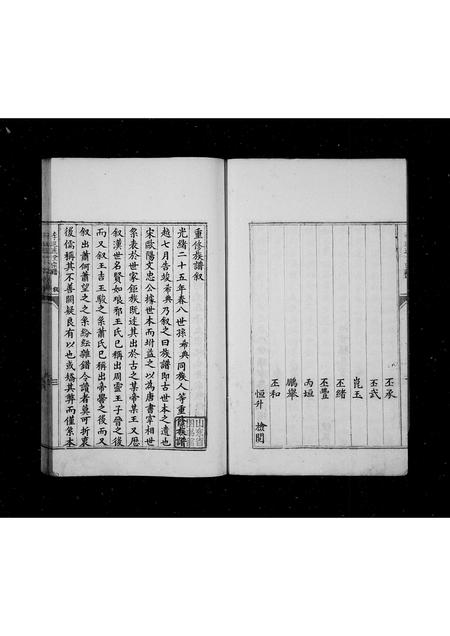 丕承
丕武
崑玉
丕緒
丕豐
丙垣
鵬舉
丕和
恒升 檢閱
重修族譜叙
光緒二十五年春八世孫希典同族人等重修族譜
越七月告竣希典乃叙之曰族譜即古世本之遺也
宋歐陽文忠公據世本而坿益之以為唐書宰相世
系表於世家鉅族既述其出於古之某帝某王又歷
叙漢世名賢如琅邪王氏已稱出周靈王子晉之後
而又叙王吉王駿之系蕭氏已稱出帝嚳之後而又
叙出蕭何蕭望之之系紛紜雜錯令讀者莫可折衷
後儒稱其不善闕疑良有以也或矯其弊而僅系本